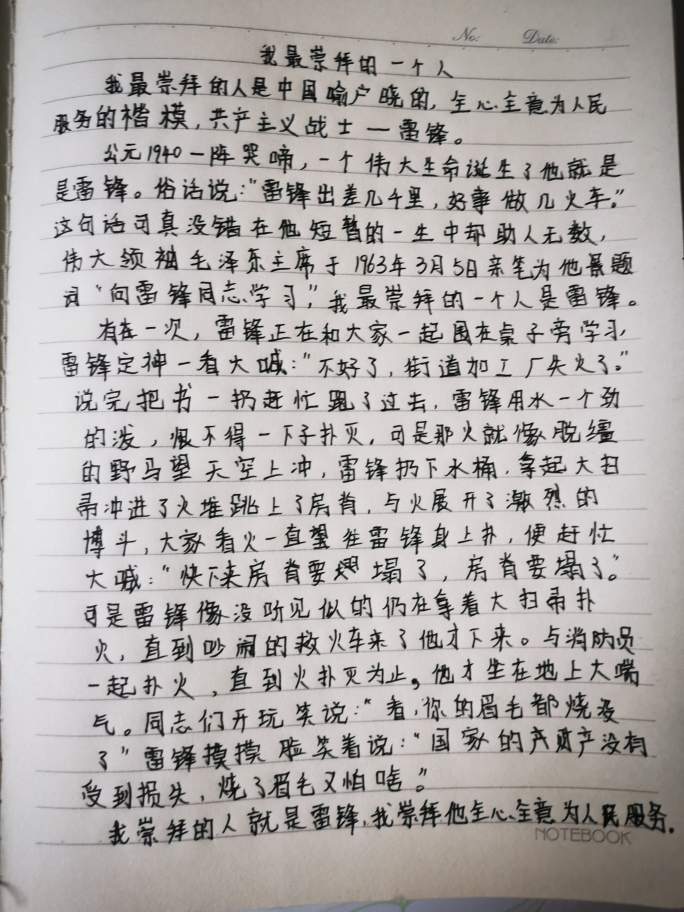 No:        Date:
我最崇拜的一个人
我最崇拜的人是中国喻户晓的,全心全意为人民
服务的楷模,共产主义战士一雷锋。
公元1940一阵哭啼,一个伟大生命诞生了他就是
是雷锋。俗话说:“雷锋出差几千里,好事做几火车。”
这句话可真没错在他短暂的一生中帮助人无数,
伟大领袖毛泽东主席于1963年3月5日亲笔为他题
词“向雷锋同志学习”,我最崇拜的一个人是雷锋。
有在一次,雷锋正在和大家一起围在桌子旁学习,
雷锋定神一看大喊:“不好了,街道加工厂失火了。”
说完把书一扔赶忙跑了过去,雷锋用水一个劲
的泼,恨不得一下子扑灭,可是那火就像脱缰
的野马望天空上冲,雷锋扔下水桶,拿起大扫
帚冲进了火堆跳上了房肖,与火展开了激烈的
博斗,大家看火一直望往雷锋身上扑,便赶忙
大喊:“快下来房肖要塌了,房肖要塌了。”
可是雷锋像没听见似的仍在拿着大扫帚扑
火,直到吵闹的救火车来了他才下来。与消防员
一起扑火,直到火扑灭为止。他才坐在地上大喘
气。同志们开玩笑说:“看,你的眉毛都烧没
了”雷锋摸摸脸笑着说:“国家的产财产没有
受到损失,烧了眉毛又怕啥。”
我崇拜的人就是雷锋,我崇拜他全心全意为人民服务.
NOTEBOOK